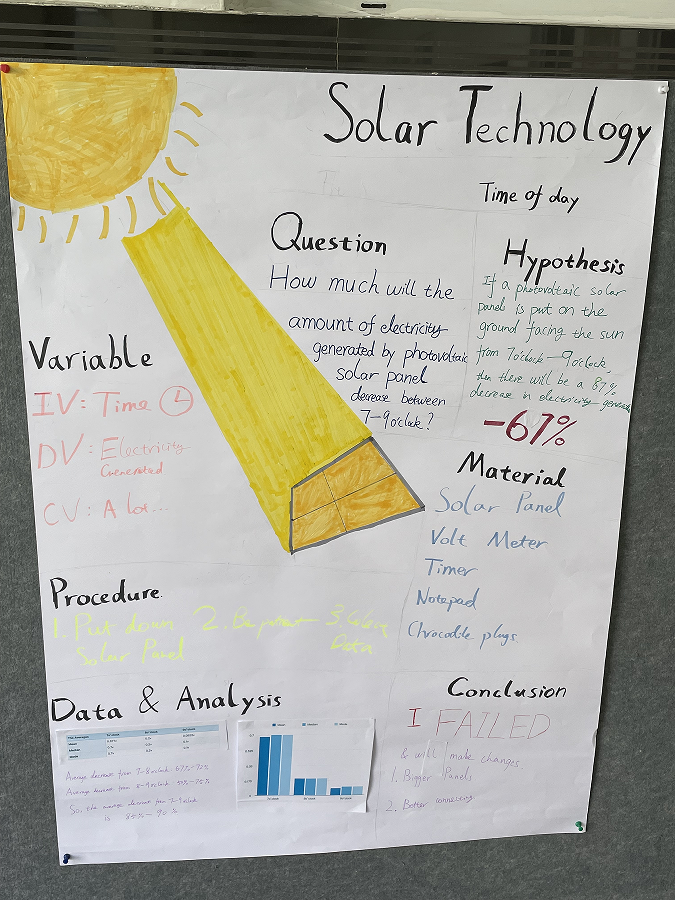 Solar Technology
Time of day
Question
How much will the
amount of electricity
generated by photovoltaic
solar panel
decrease between
7-9 o'clock?
Hypothesis
If a photovoltaic solar
panel is put on the
ground facing the sun
from 7 o'clock - 9 o'clock,
then there will be a 87%
decrease in electricity
-67%
Variable
IV: Time
DV: Electricity
Generated
CV: A lot...
Material
Solar Panel
Volt Meter
Timer
Notepad
Chrocodile plugs
Procedure
1. Put down
Solar Panel
2. Be patient
3.
Data
Data & Analysis
Mean
Median
Average decrease from 7-8 o'clock
Average decrease from 8-9 o'clock
the average from 7-9 o'clock
is 85% - 90%
Mean Median
Conclusion
I FAILED
& will make changes
1. Bigger Panels
2. Better connecting